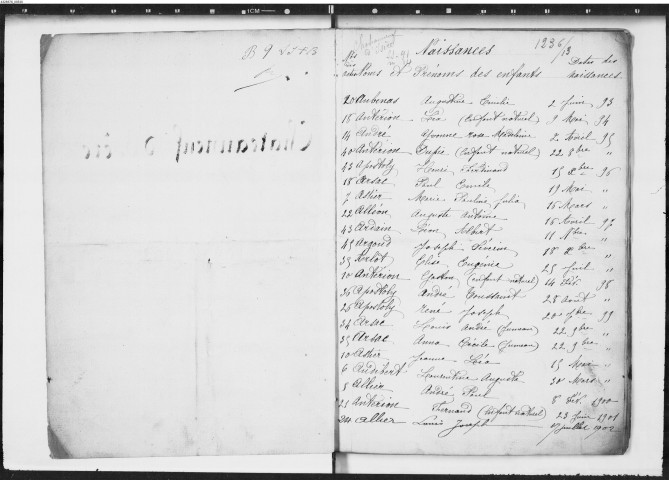 B 9
Chateauneuf d'Isère
1236/13
Naissances
Nos des actes Noms et Prénoms des enfants Dates des naissances
20 Aubenas Augustine Emilie 2 Juin 93
18 Anterion Léa (enfant naturel) 9 Mai 94
14 André Yvonne Rose Madeleine 2 Avril 95
40 Anterion (enfant naturel) 22 8bre "
43 Apostoly Henri Ferdinand 15 Xbre 96
18 Arsac Paul Emile 19 Mai "
7 Astier Marie Pauline Julia 16 Mars "
22 Alléon Auguste Antoine 16 Avril 97
43 Ardain Léon Albert 11 Nbre "
45 Argoud Joseph 18 Xbre "
35 Arlot Elise Eugénie 25 Juil "
10 Anterion Gaston (enfant naturel) 14 Fév. 98
36 Apostoly André Toussaint 28 Août "
26 Apostoly René Joseph 20 99
34 Arsac Louis André (Jumeau) 22 9bre "
35 Arsac Anna Cécile (Jumeau) 22 9bre "
10 Astier Jeanne Léa 15 Mai "
6 Audibert Laurentine Auguste 30 Mars "
5 Alléon André Paul 8 Fév. 1900
21 Anterion Fernand (enfant naturel) 23 Juin 1901
24 Allier Louis Joseph 17 Juillet 1902